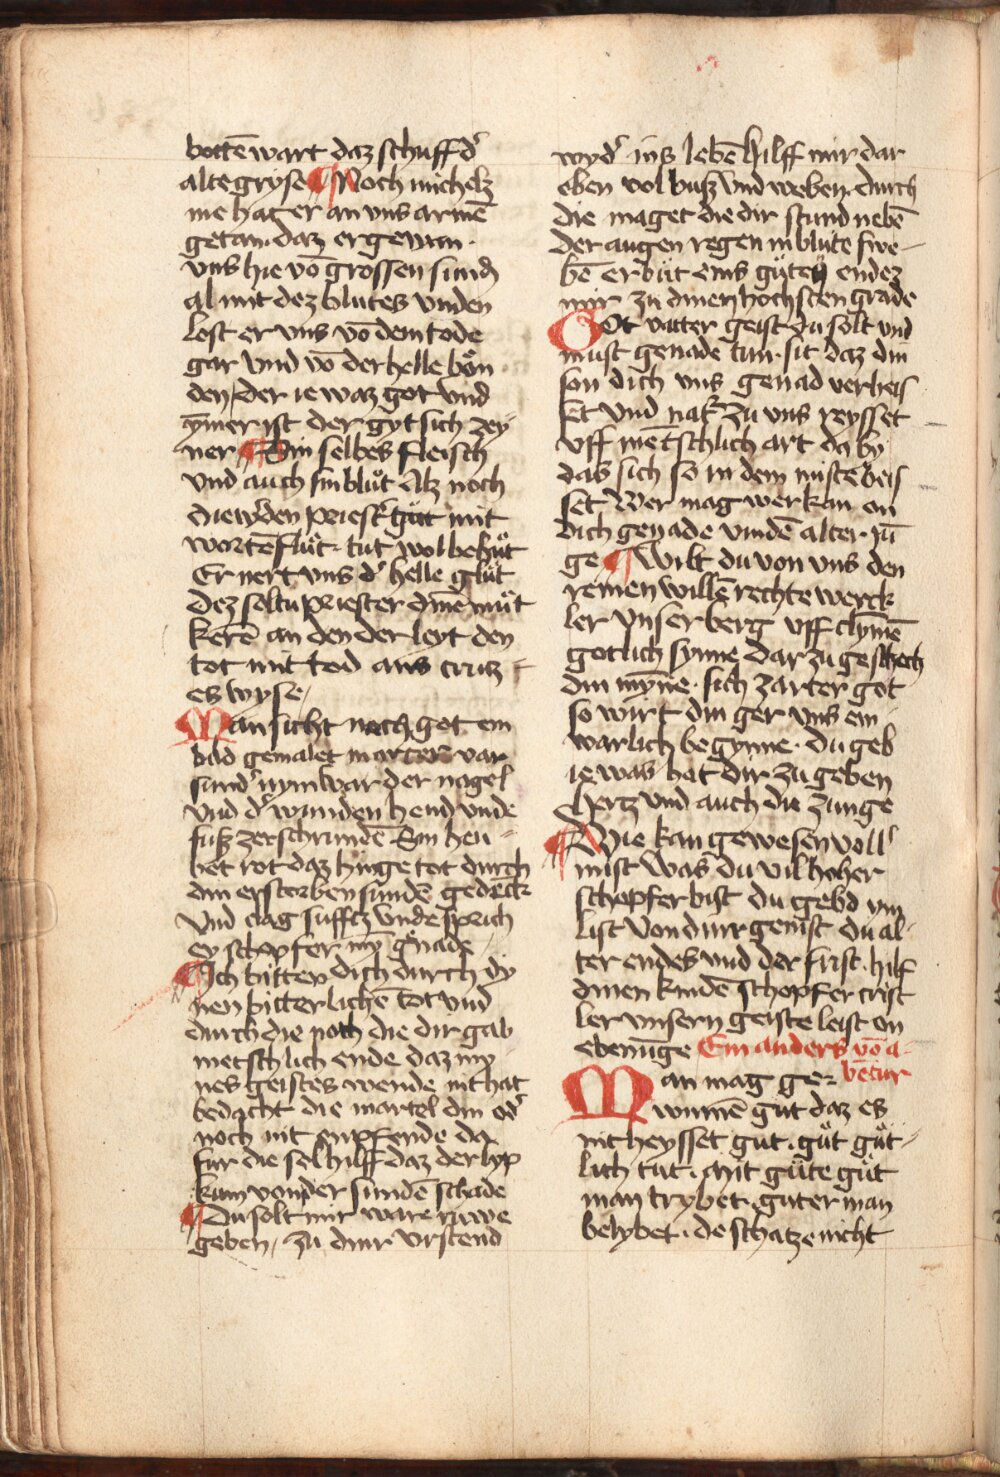 bottē wart daz schuff d᷎
alte gryse ¶ Noch michelz
me hat er an uns armē
getan. daz er gewan.
vns hie vō grossen sünd
al mit dez blutes vnden
lost er vns vō dem tode
gar vnd vō der helle bön
den der ie waz got vnd
ȳmer ist der gyt sich zey
ner ¶ Sin selbes fleisch
vnd auch sin blůt Alz noch
die wden priest gůt mit
wortē flůt. tut wol behůt
Er nert vns d᷎ helle glůt
Dez soltu priester dinē můt
kerē an den der leyt den
tot mit tod ans crutz
es wyse
Man sicht noch got ein
bild gemalet marter var
sund᷎ nym war der nagel
vnd d᷎ wunden hend vnde
fuß zerschrunden Sin heu-
bet rot daz hange tot durch
din erstorben sünden gedēck
vnd clag sufftz vnde sprich
ey schepfer mȳ gnade
¶ Ich bitten dich durch dy
nen bitterlichē tot vnd
durch die noth die dir gab
metschlich ende daz my
nes geistes wende nit hat
bedacht die martel din od᷎
noch nit enpfende da
für die sel hilff daz der lyp
kum von der sundē schade
¶ Du solt mir ware ruwe
geben, zu diner vrstend
wyd᷎ ins lebē hilff mir dar
eben vol buß vnd weben. durch
die maget die dir stund nebē
der augen regen in blute swe-
bē erbüt eins gütē endez
mir zu dinen hochsten grade
Got vatter geist du solt vnd
must genade tun. sit daz din
son dich vns genad verheis
set vnd nak zu vns reysset
vff mētschlich art da by
das sich so in dem miste beis
set Wer mag wer kan on
dich genade vindē alter. jū
ge ¶ Wilt du von vns den
reinen willē rechte werck
ler vnser berg vff clymē
gotlich synne dar zu geschech
din mȳne. sich zarter got
so wirt din ger vns ein
warlich begynne. du geb
ie was hat dir zu geben
hertz vnd auch die zunge
¶ Wie kan gewesen voll
mist was du vil hoher
schepfer bist du gebd ym
list von dinr genist du al-
ter endes vnd der frist. hilf
dinen kindē schepfer crist
ler vnsern geiste leist on
ebenūge Ein anders vō a-
bētur
Man mag ge-
winnē gut daz es
nit heysset gut. gůt gůt-
lich tut. mit güte gůt
man trybet. guter man
belybet. de schatze nicht